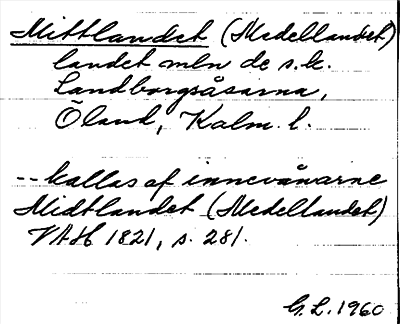 Mittlandet (Medellandet)
landet mln de s.k.
Landborgsåsarna,
Öland, Kalm. l.
-- kallas af innevånarne
Midtlandet (Medellandet)
VAH 1821, s. 281.
G.L. 1960